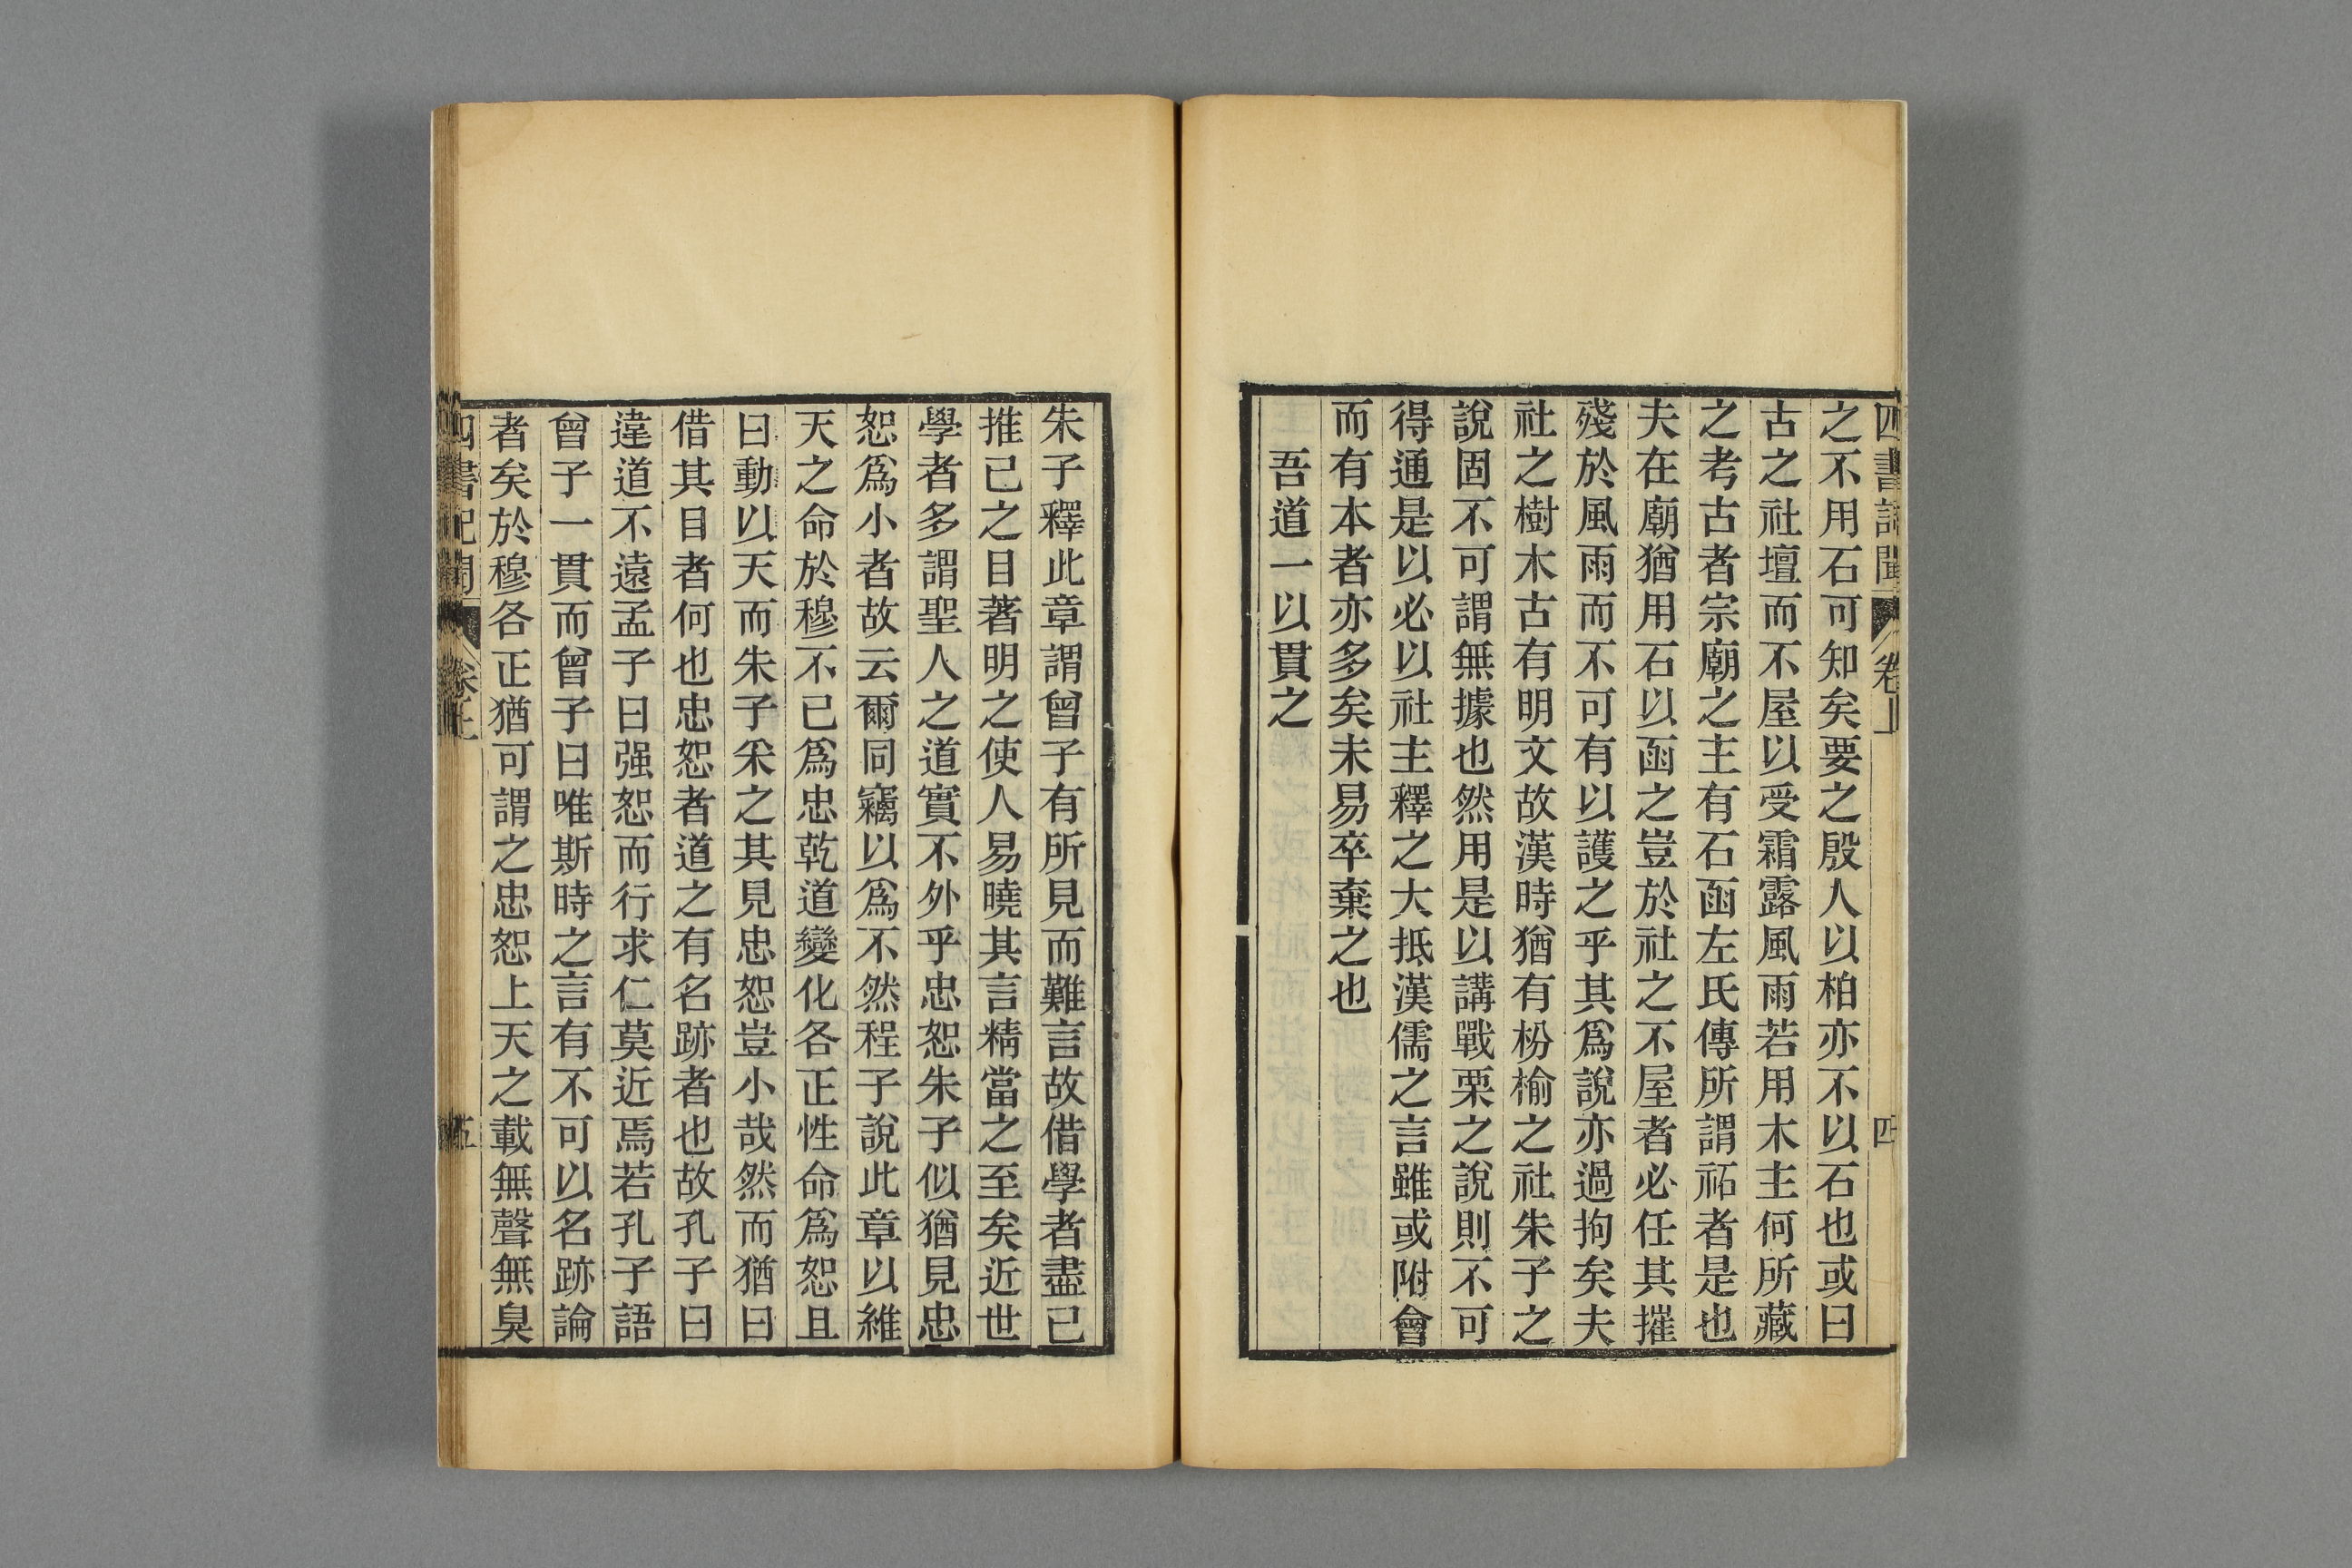 四書記聞 卷上 四
之不用石可知矣要之殷人以柏亦不以石也或曰
古之社壇而不屋以受霜露風雨若用木主何所藏
之考古者宗廟之主有石函左氏傳所謂祏者是也
夫在廟猶用石以函之豈於社之不屋者必任其摧
殘於風雨而不可有以護之乎其爲說亦過拘矣夫
社之樹木古有明文故漢時猶有枌榆之社朱子之
說固不可謂無據也然用是以講戰栗之說則不可
得通是以必以社主釋之大抵漢儒之言雖或附會
而有本者亦多矣未易卒棄之也
吾道一以貫之
朱子釋此章謂曾子有所見而難言故借學者盡己
推己之目著明之使人易曉其言精當之至矣近世
學者多謂聖人之道實不外乎忠恕朱子似猶見忠
恕爲小者故云爾同竊以爲不然程子說此章以維
天之命於穆不已爲忠乾道變化各正性命爲恕且
曰動以天而朱子釆之其見忠恕豈小哉然而猶曰
借其目者何也忠恕者道之有名跡者也故孔子曰
違道不遠孟子曰强恕而行求仁莫近焉若孔子語
曾子一貫而曾子曰唯斯時之言有不可以名跡論
者矣於穆各正猶可謂之忠恕上天之載無聲無臭
四書記聞 卷上 五